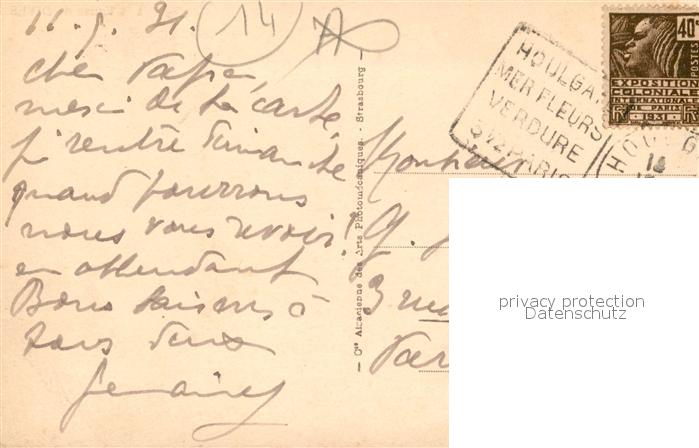 11. 9. 31.
14
merci de ta carte,
je rentre dimanche
quand pourrons
nous vous revoir?
en attendant
Bons baisers à
tous deux
Monsieur
G.
3 rue
Par
— Cie Alsacienne des Arts Photomécaniques. - Strasbourg —
HOULGA
MER FLEURS
VERDURE
PARIS
HOU G
40c
POSTES
EXPOSITION
COLONIALE
INTERNATIONALE
PARIS
1931
RF
privacy protection
Datenschutz